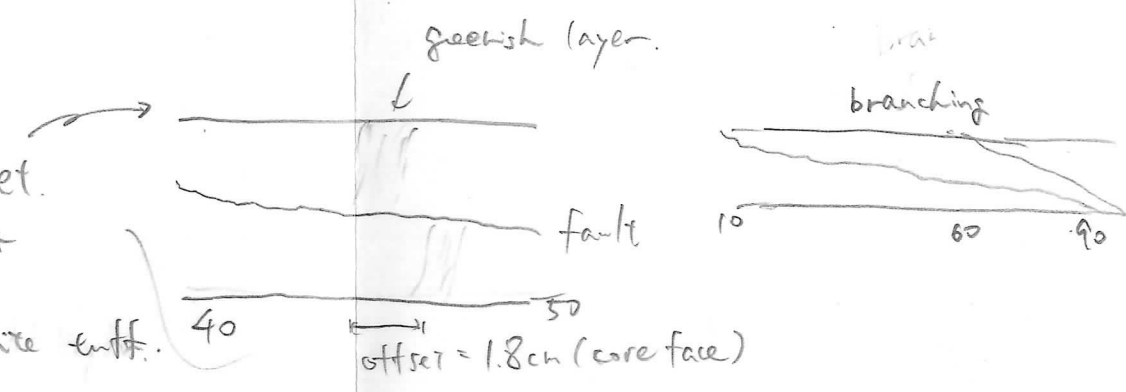 greenish layer.
branching
et.
fault
10
60
90
40
50
tuff.
offset = 1.8cm (core face)